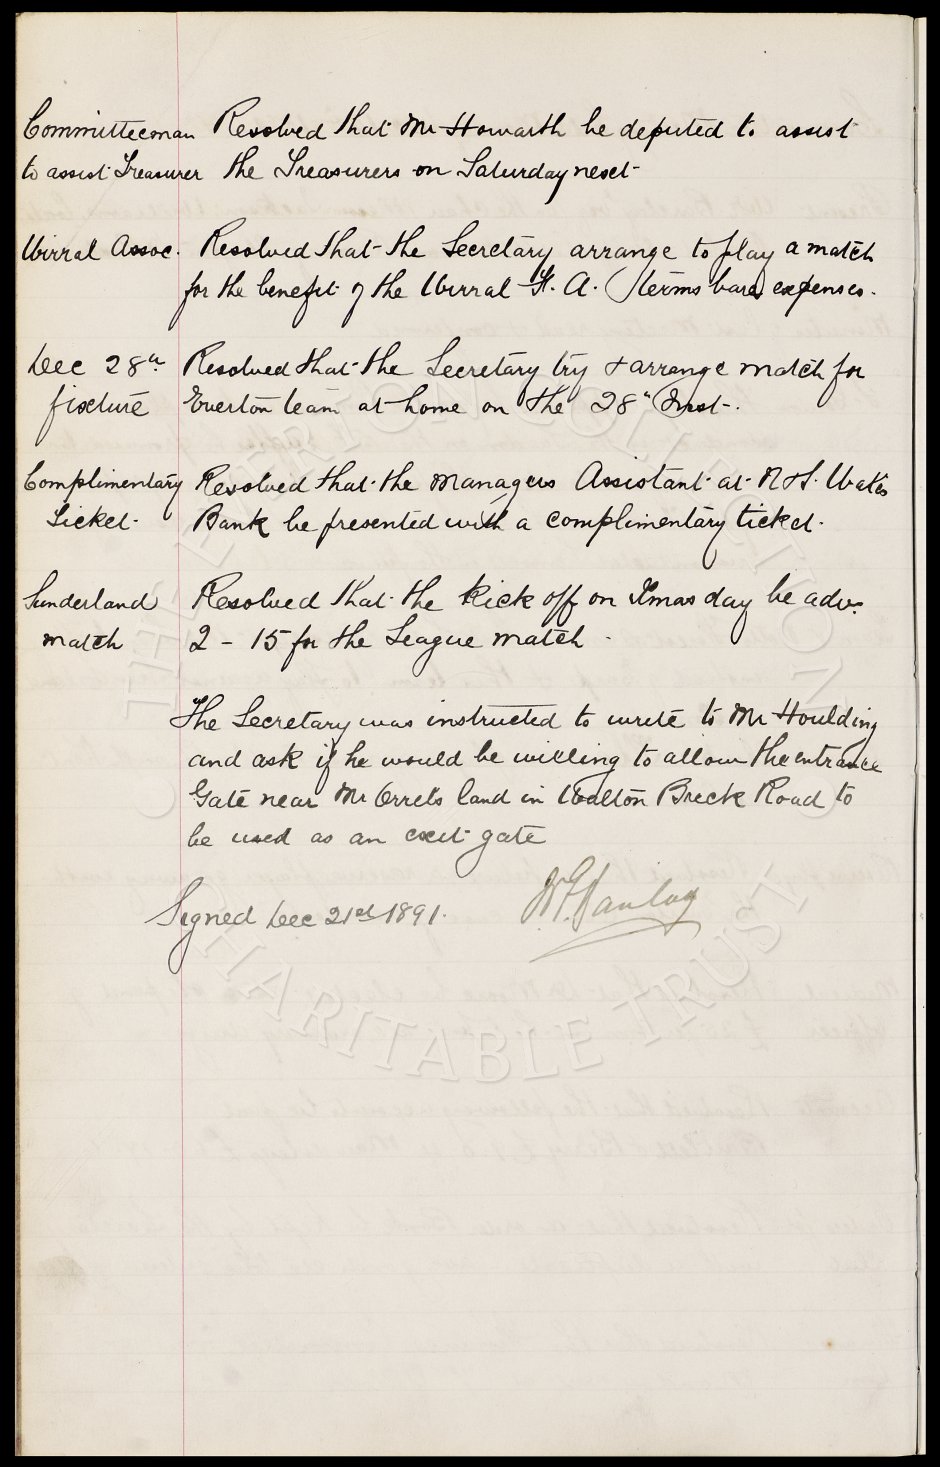 Committeeman Resolved that Mr Howarth be deputed to assist
to assist Treasurer the Treasurers on Saturday next
Wirral Assoc. Resolved that the Secretary arrange to play a match
for the benefit of the Wirral F. A. (terms bare expenses.
Dec 28th Resolved that the Secretary try & arrange match for
fixture Everton team at home on the 28th Inst.
Complimentary Resolved that the Managers Assistant at N & S. Wales
Ticket Bank be presented with a complimentary ticket.
Sunderland Resolved that the Kick off on Xmas day be adv.
match 2-15 for the League match.
The Secretary was instructed to write to Mr Houlding
and ask if he would be willing to allow the entrance
Gate near Mr Orrells land in Walton Breck Road to
be used as an exit gate
Signed Dec 21st 1891.
THE EVERTON COLLECTION
CHARITABLE TRUST